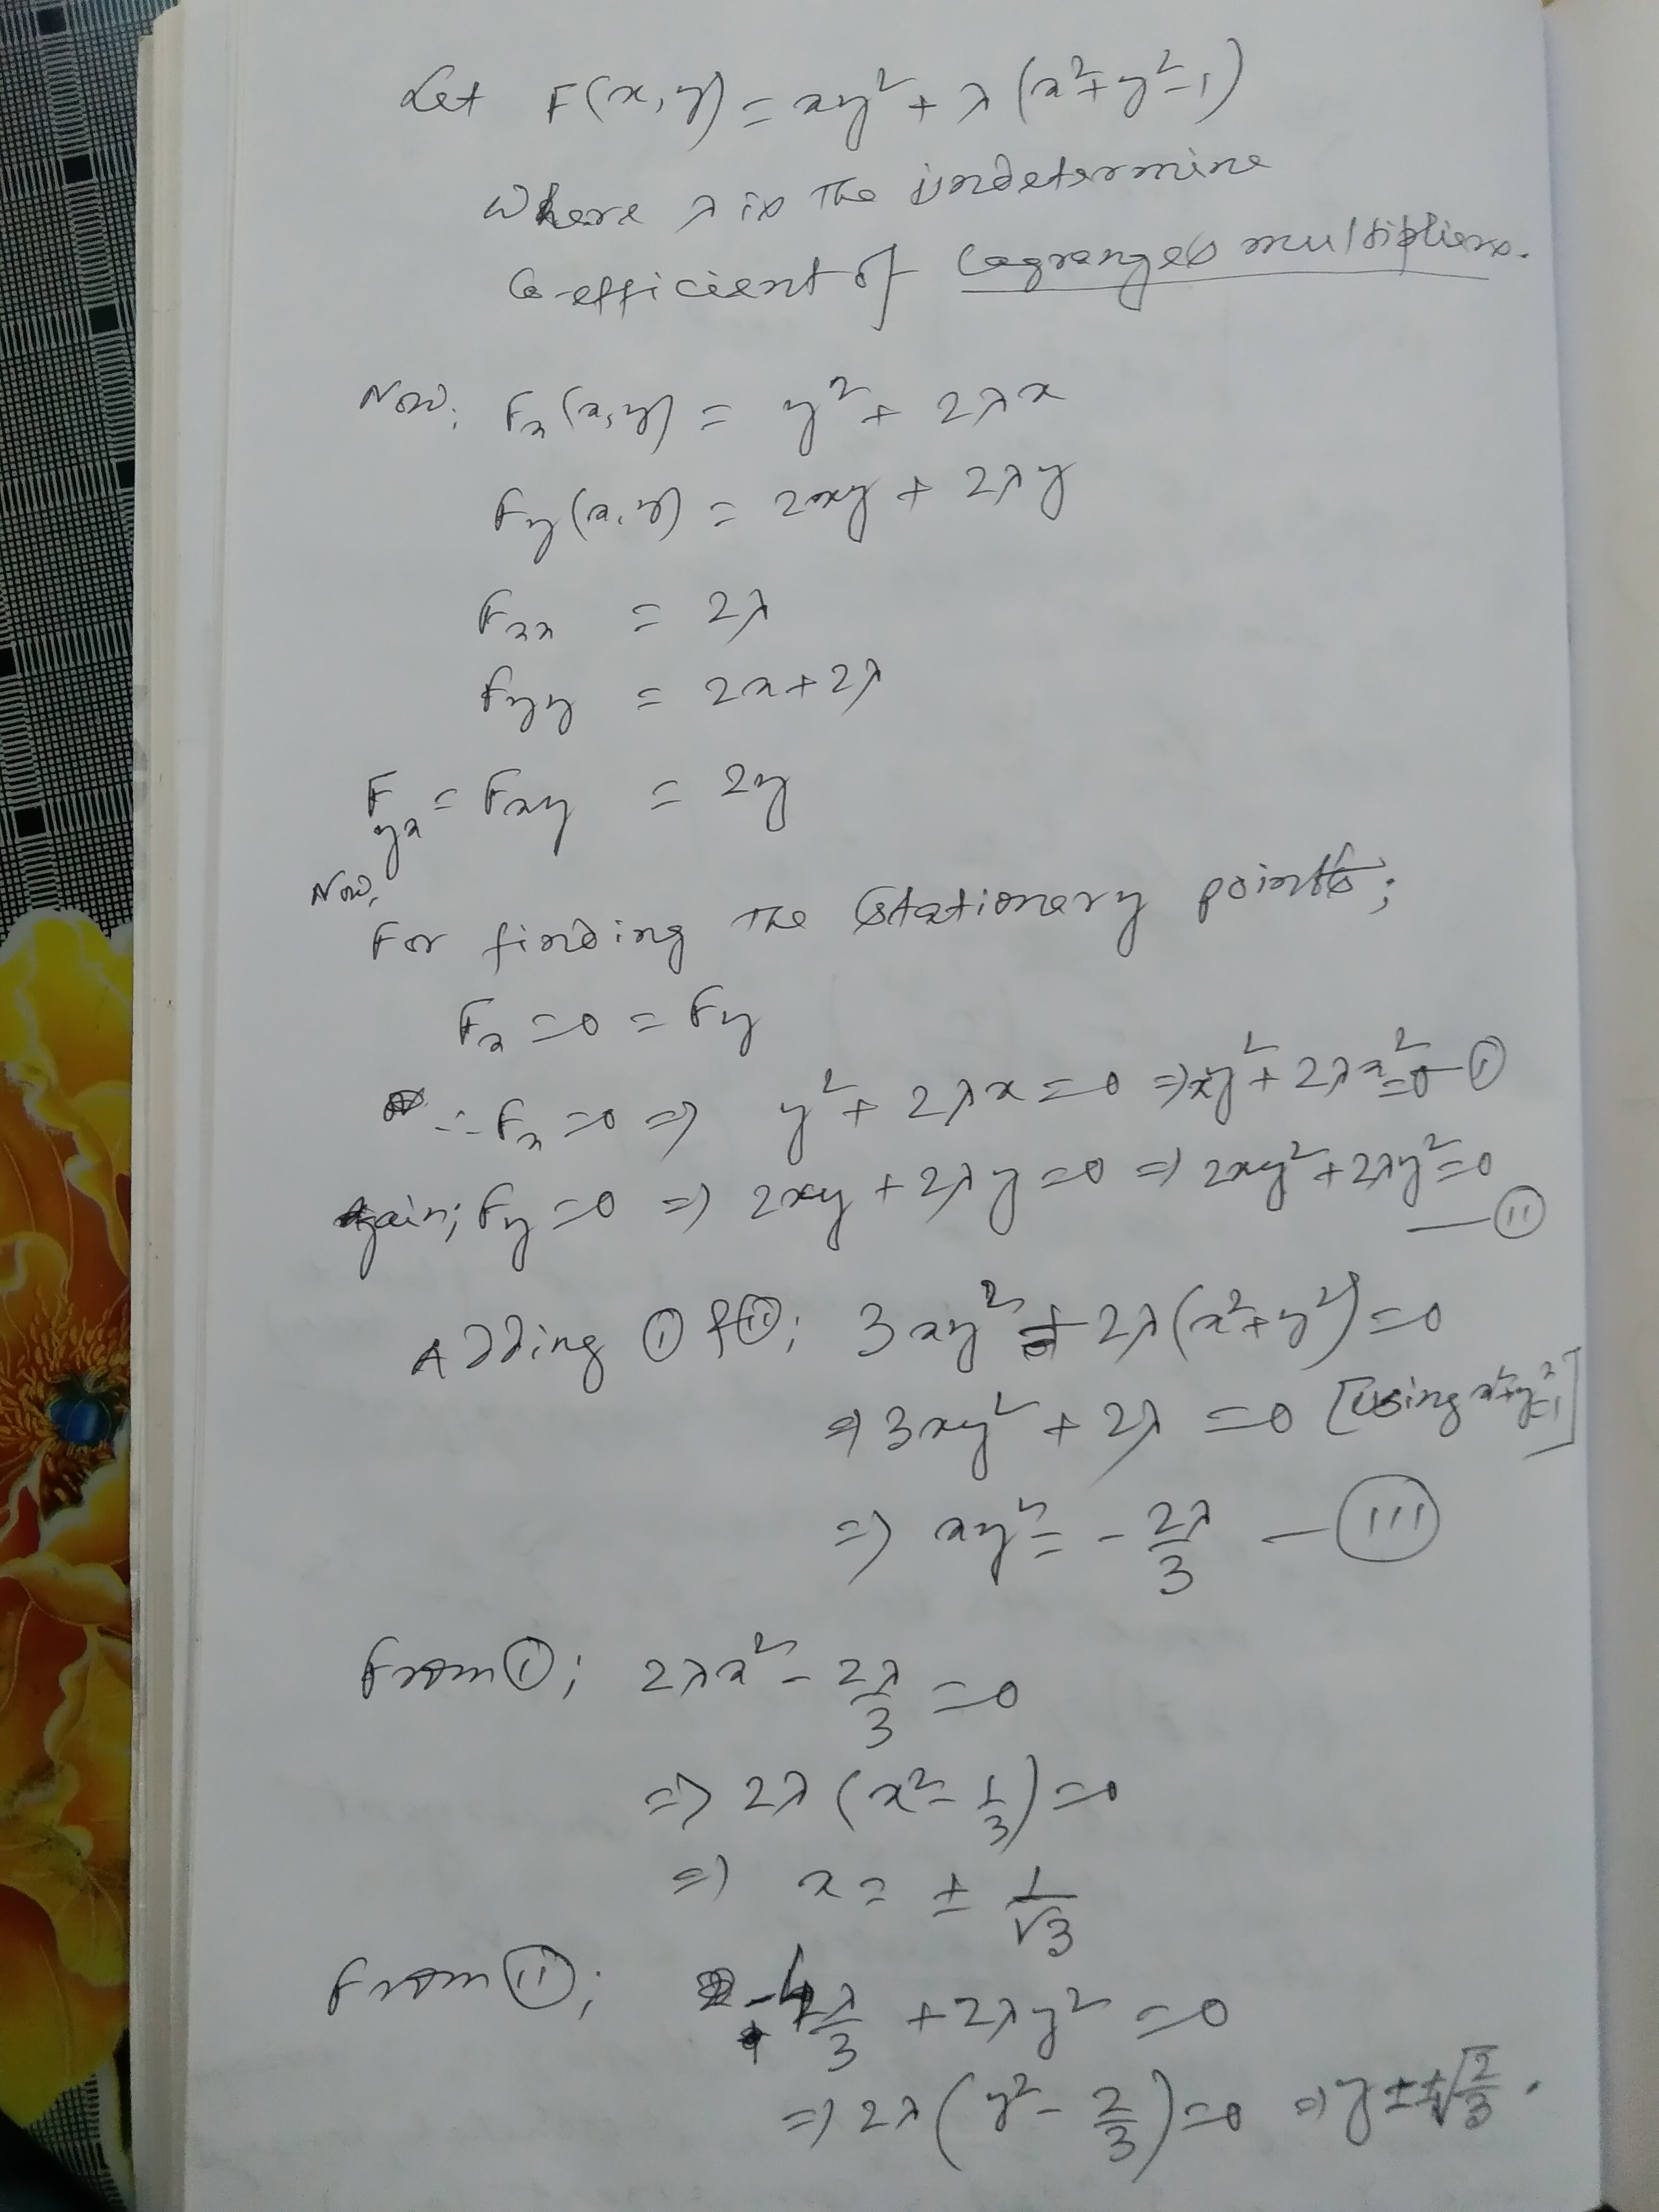 Let F(x,y) = xy² + λ(x²+y²-1)
Where λ is the undetermine
Co-efficient of Lagranges multipliers.
Now, Fx(x,y) = y² + 2λx
Fy(x,y) = 2xy + 2λy
Fxx = 2λ
Fyy = 2x+2λ
Fyx = Fxy = 2y
Now,
For finding the Stationery points;
Fx = 0 = Fy
∴ Fx = 0 ⇒ y² + 2λx = 0 ⇒ xy² + 2λx² = 0 — (i)
Again; Fy = 0 ⇒ 2xy + 2λy = 0 ⇒ 2xy² + 2λy² = 0
— (ii)
Adding (i) & (ii); 3xy² + 2λ(x²+y²) = 0
⇒ 3xy² + 2λ = 0 [using x²+y²=1]
⇒ xy² = - 2λ/3 — (iii)
From (i); 2λx² - 2λ/3 = 0
⇒ 2λ (x² - 1/3) = 0
⇒ x = ± 1/√3
From (ii); -4λ/3 + 2λy² = 0
⇒ 2λ (y² - 2/3) = 0 ⇒ y = ±√2/3 .